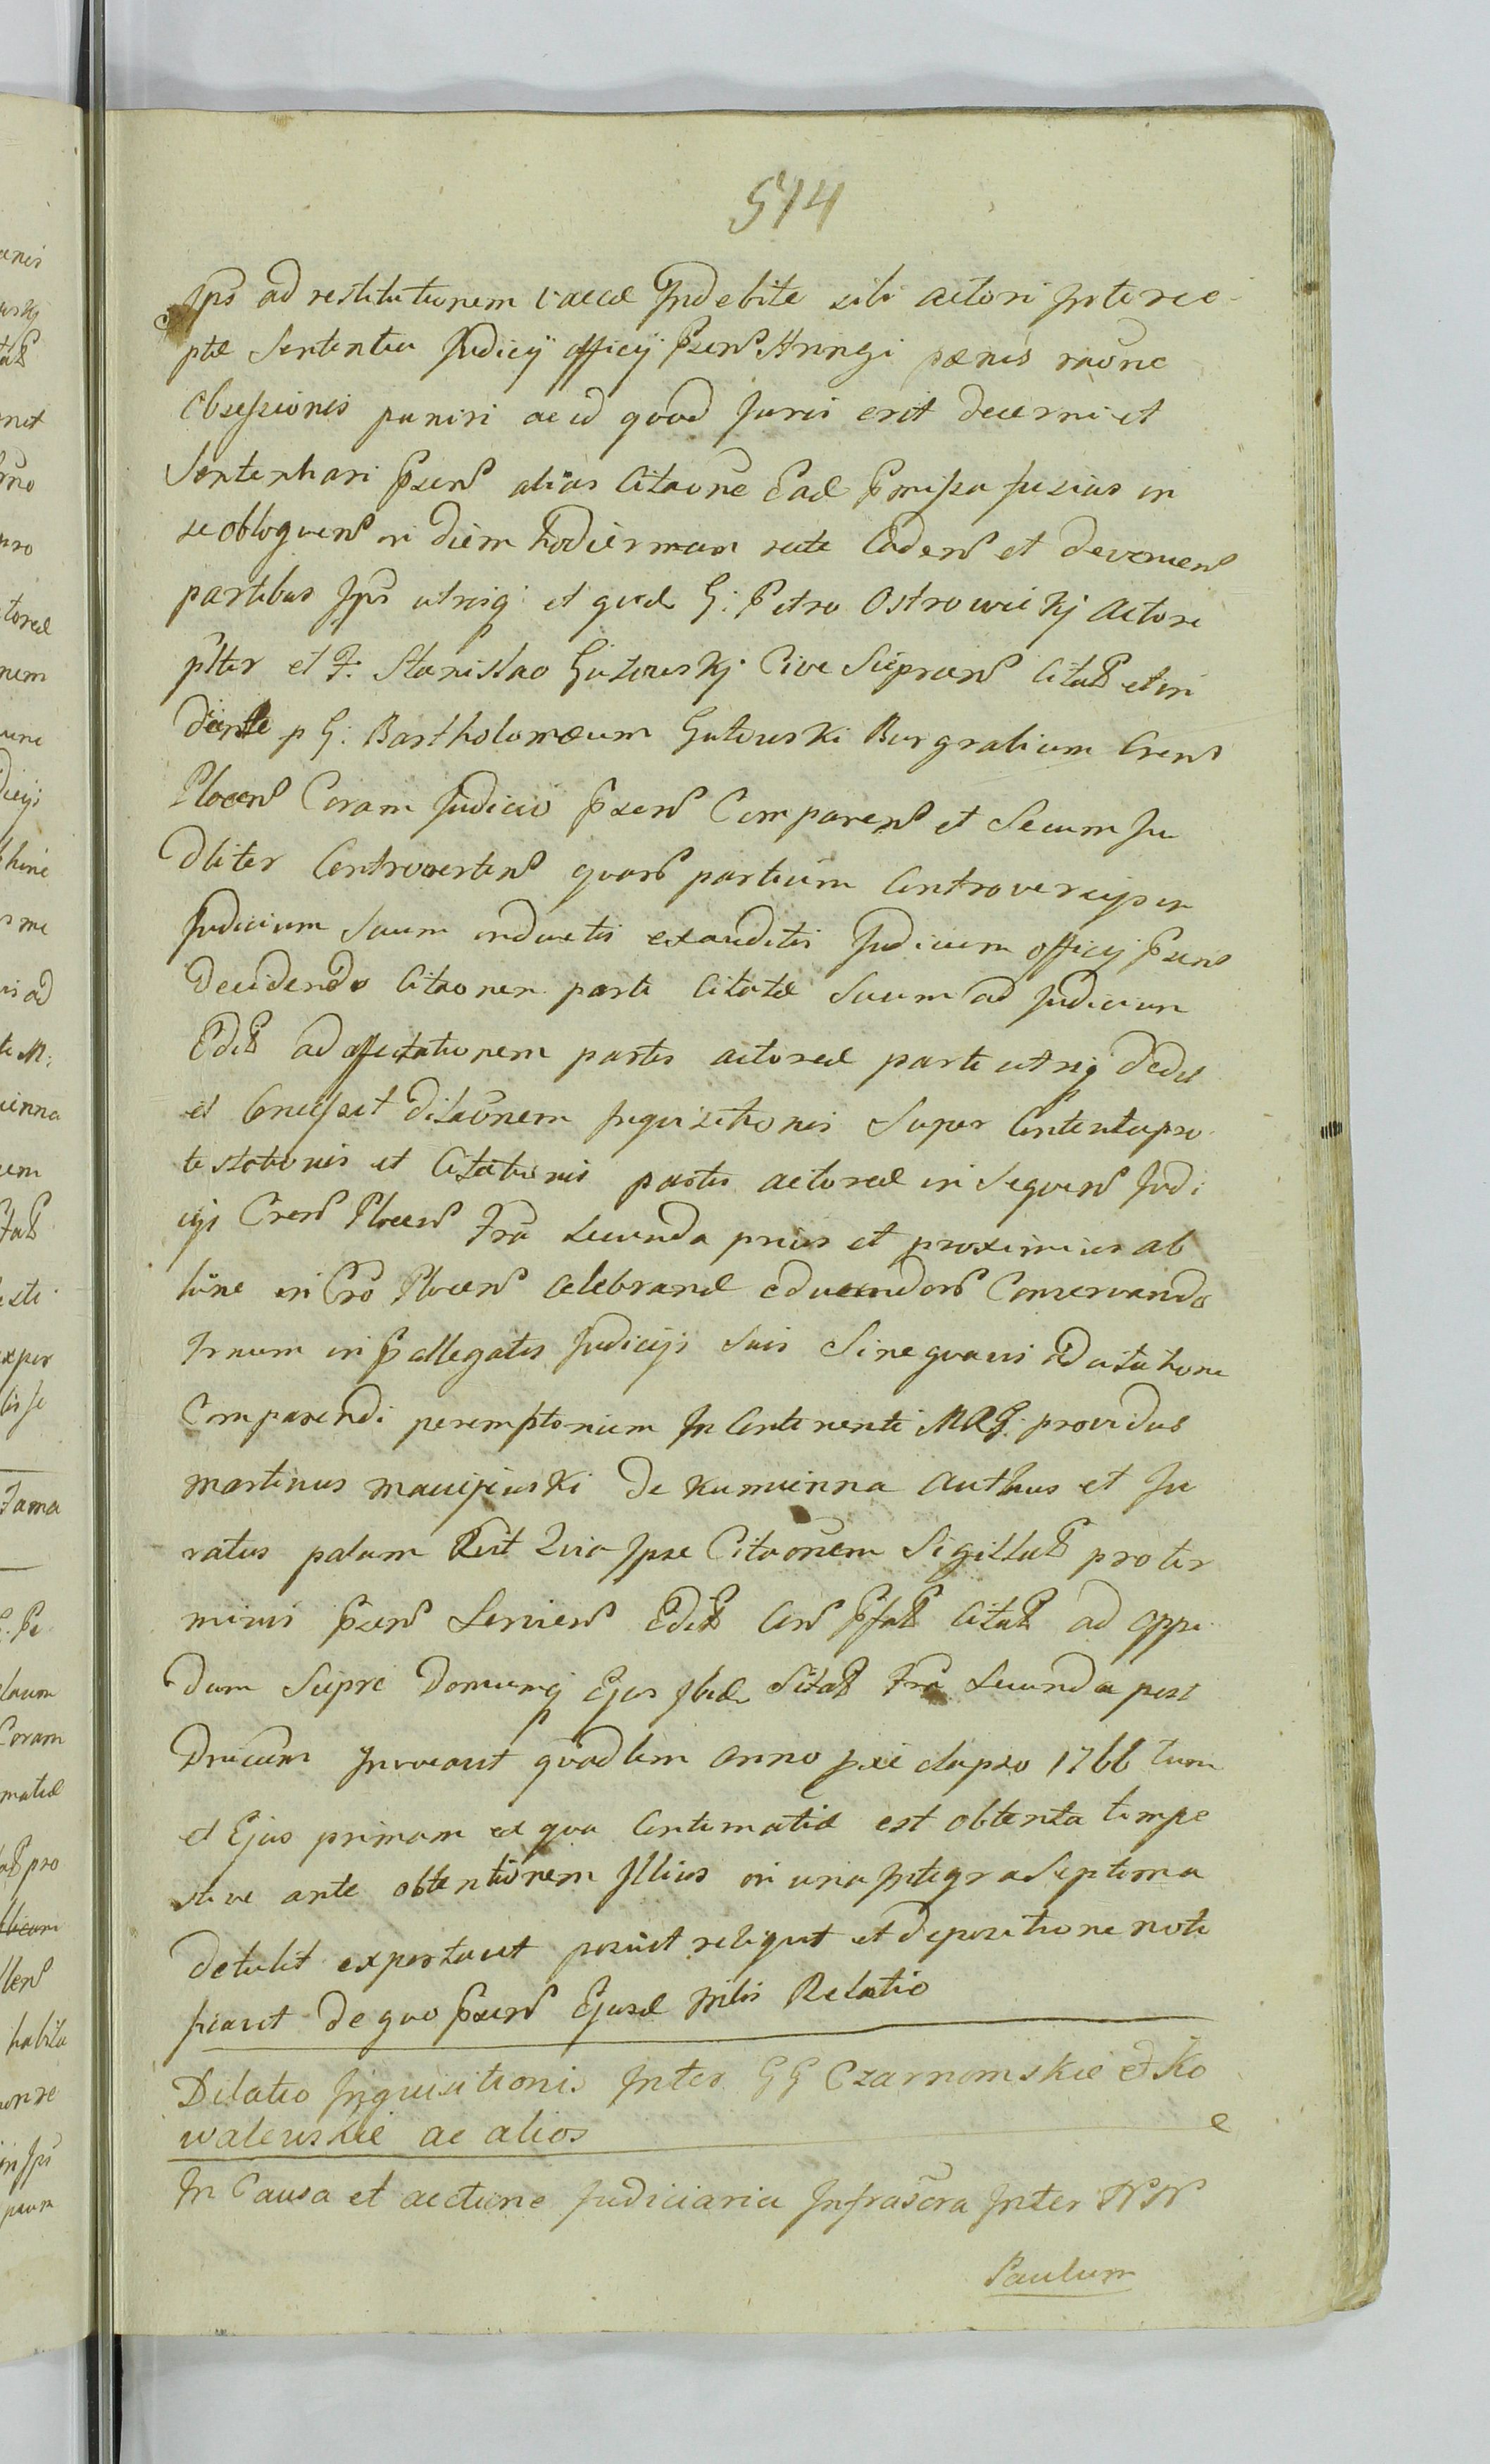 514
Ips ad restitutionem vaccæ Indebite sibi actori Interce-
ptæ Sententia Judicij officij Pszens Stringi pænis raone
Obsessionis puniri ac id quod Juris erit decerni et
Sententiari Pszens alias Citaone Ead Pmissa fusius in
se obloquens in diem hodiernam recte Cadens et devenien
partibus Ips utrisq et quidem G: Petro Ostrowickj Actore
plter et F. Stanislao Gutowskj Cive Sieprcens Citat et in
dente p G: Bartholomæum Gutowski Burgrabium Crens
Plocens Coram Judicio Pszens Comparens et Secum Ju
dliter Controvertens quars partium Controversijs in
Judicium Suum inductis exauditis Judicium officij Pszens
Decidendo Citaonem parti Citatæ Suum ad Judicium
Edit ad affectationem partis actoreæ parti utriq dedit
et Concessit Dilaonem Inquisitionis Super Contenta pro
testationis et Citationis partis actoreæ in Sequens Judi
cijs Crens Plocens Fra Secunda prius et proximius ab
hinc in Cro Plocens Celebrand educendors Conservando
Trnum in Pallegatis Judicijs Suis Sine quavis adcitatione
Comparendi peremptorium In Continenti MRG. providus
Martinus Macijewski de Kumienna Authus et Ju
ratus palam Rcit Quia Ipse Citaonem Sigillat pro ter
minis Pszens Serviens Edit Cons Pfat Citat ad oppi
dum Siepre Domumq Ejus Ibid Sitat Fra Secunda post
Dnicam Invocavit quadlem Anno pxe elapso 1766 tum
et Ejus primam ex qua Contumatia est obtenta tempe
stive ante obtentionem Illius in una Integra Septima
detulit exportavit posuit reliquit et depositione noti
ficavit de quo Pszens Ejusd Mlis Relatio
Dilatio Inquisitionis Inter GG Czarnomskie et Ko
walewskie ac alios e
In Causa et actione Judiciaria Infrascra Inter NN
Paulum